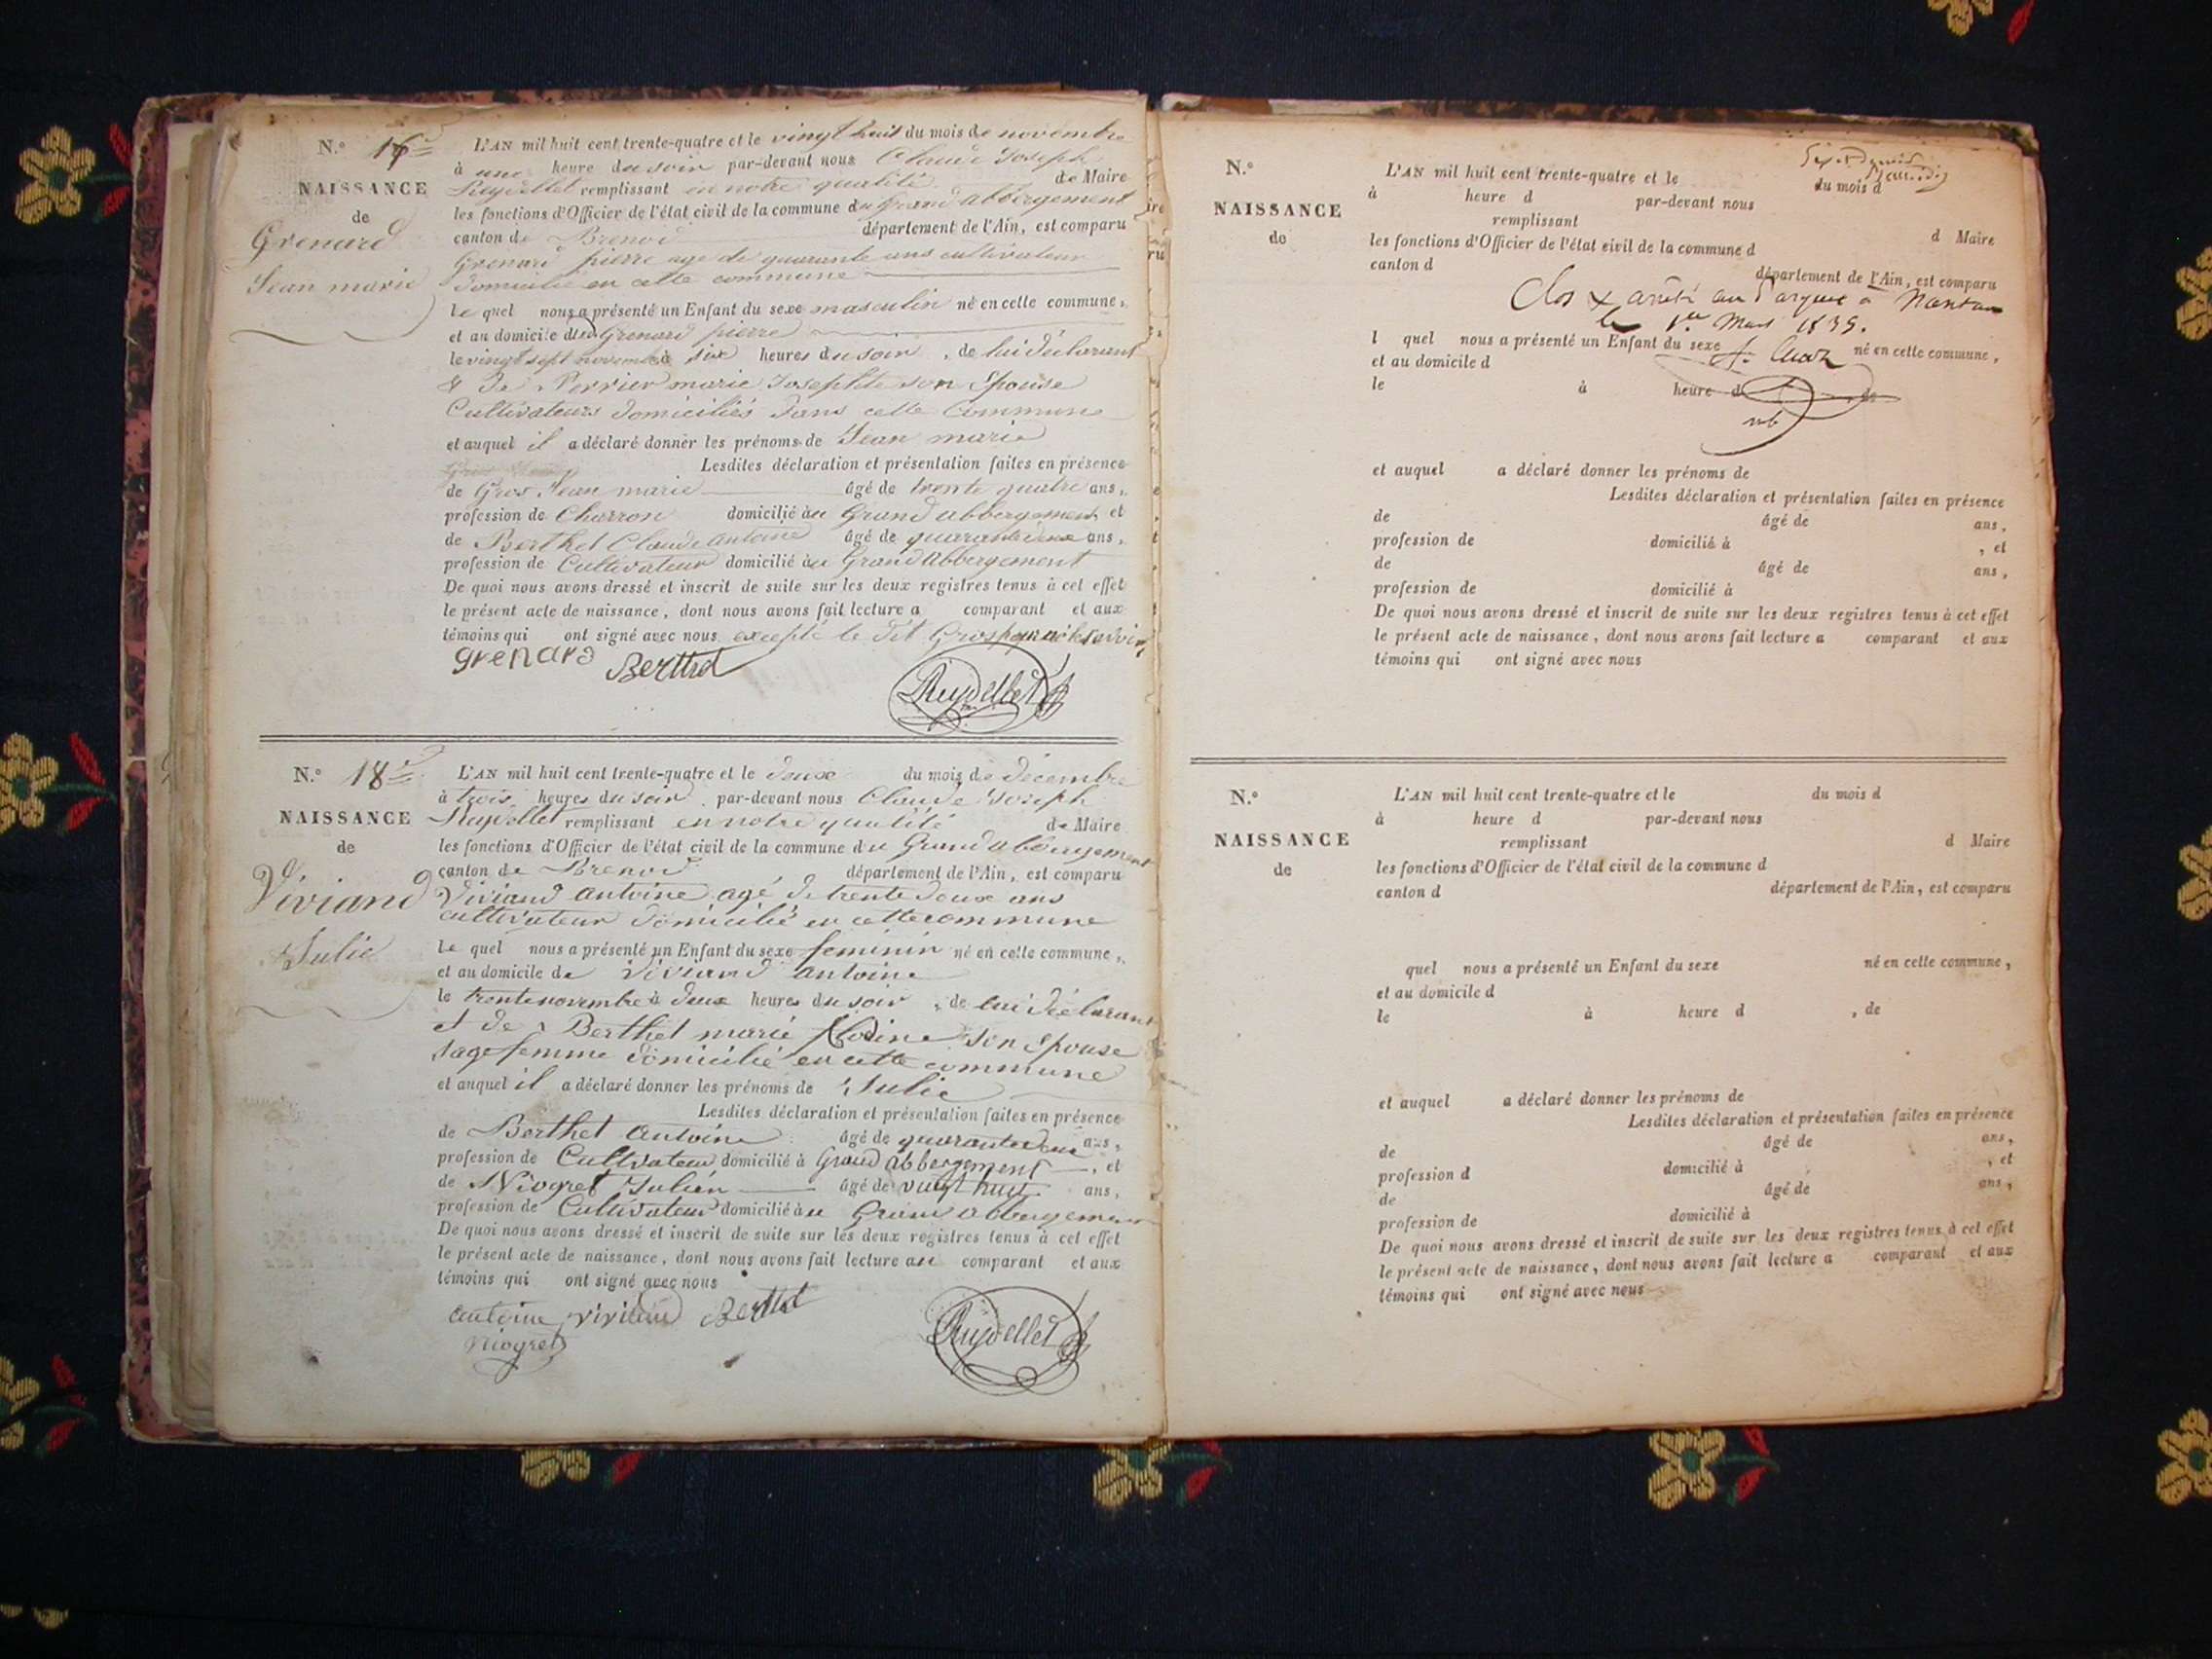 N.o 17e
NAISSANCE
de
Grenard
Jean marie
L'AN mil huit cent trente-quatre et le vingt huit du mois de novembre
à une heure du soir par-devant nous Claude Joseph
Reydellet remplissant en notre qualité de Maire
les fonctions d'Officier de l'état civil de la commune du grand abbergement
canton de Brenod département de l'Ain, est comparu
Grenard pierre agé de quarante ans cultivateur
domicilié en cette commune
le quel nous a présenté un Enfant du sexe masculin né en cette commune,
et au domicile du Grenard pierre
le vingt sept novembre à six heures du soir, de lui déclarant
& de Perrier marie Josephte son Epouse
Cultivateurs domiciliés dans cette Commune
et auquel il a déclaré donner les prénoms de Jean marie
Lesdites déclaration et présentation faites en présence
de Gros Jean marie âgé de trente quatre ans,
profession de Charron domicilié au Grand abbergement et
de Berthet Claude Antoine âgé de quarante deux ans,
profession de Cultivateur domicilié au Grand Abbergement
De quoi nous avons dressé et inscrit de suite sur les deux registres tenus à cet effet
le présent acte de naissance, dont nous avons fait lecture a comparant et aux
témoins qui ont signé avec nous excepté le dit Gros
grenard Berthet
Reydellet
N.o 18e
NAISSANCE
de
Viviand
Julie
L'AN mil huit cent trente-quatre et le deux du mois de décembre
à trois heures du soir par-devant nous Claude Joseph
Reydellet remplissant en notre qualité de Maire
les fonctions d'Officier de l'état civil de la commune du Grand abbergement
canton de Brenod département de l'Ain, est comparu
Viviand Antoine agé de trente deux ans
cultivateur domicilié en cette commune
le quel nous a présenté un Enfant du sexe feminin né en cette commune,
et au domicile de Viviand antoine
le trente novembre à deux heures du soir, de lui déclarant
et de Berthet marie son Epouse
sage femme domicilié en cette commune
et auquel il a déclaré donner les prénoms de Julie
Lesdites déclaration et présentation faites en présence
de Berthet Antoine âgé de quarante deux ans,
profession de Cultivateur domicilié à Grand abbergement, et
de Niogret Julien âgé de vingt huit ans,
profession de Cultivateur domicilié au Grand abbergement
De quoi nous avons dressé et inscrit de suite sur les deux registres tenus à cet effet
le présent acte de naissance, dont nous avons fait lecture au comparant et aux
témoins qui ont signé avec nous
antoine viviand Berthet
Niogret
Reydellet
N.o
NAISSANCE
de
L'AN mil huit cent trente-quatre et le du mois d
à heure d par-devant nous
remplissant d Maire
les fonctions d'Officier de l'état civil de la commune d
canton d département de l'Ain, est comparu
Clos & arrêté au Parquet à Nantua
le 1er Mars 1835.
l quel nous a présenté un Enfant du sexe né en cette commune,
et au domicile d
le à heure d de
et auquel a déclaré donner les prénoms de
Lesdites déclaration et présentation faites en présence
de âgé de ans,
profession de domicilié à , et
de âgé de ans,
profession de domicilié à
De quoi nous avons dressé et inscrit de suite sur les deux registres tenus à cet effet
le présent acte de naissance, dont nous avons fait lecture a comparant et aux
témoins qui ont signé avec nous
N.o
NAISSANCE
de
L'AN mil huit cent trente-quatre et le du mois d
à heure d par-devant nous
remplissant d Maire
les fonctions d'Officier de l'état civil de la commune d
canton d département de l'Ain, est comparu
quel nous a présenté un Enfant du sexe né en cette commune,
et au domicile d
le à heure d , de
et auquel a déclaré donner les prénoms de
Lesdites déclaration et présentation faites en présence
de âgé de ans,
profession d domicilié à , et
de âgé de ans,
profession de domicilié à
De quoi nous avons dressé et inscrit de suite sur les deux registres tenus à cet effet
le présent acte de naissance, dont nous avons fait lecture a comparant et aux
témoins qui ont signé avec nous